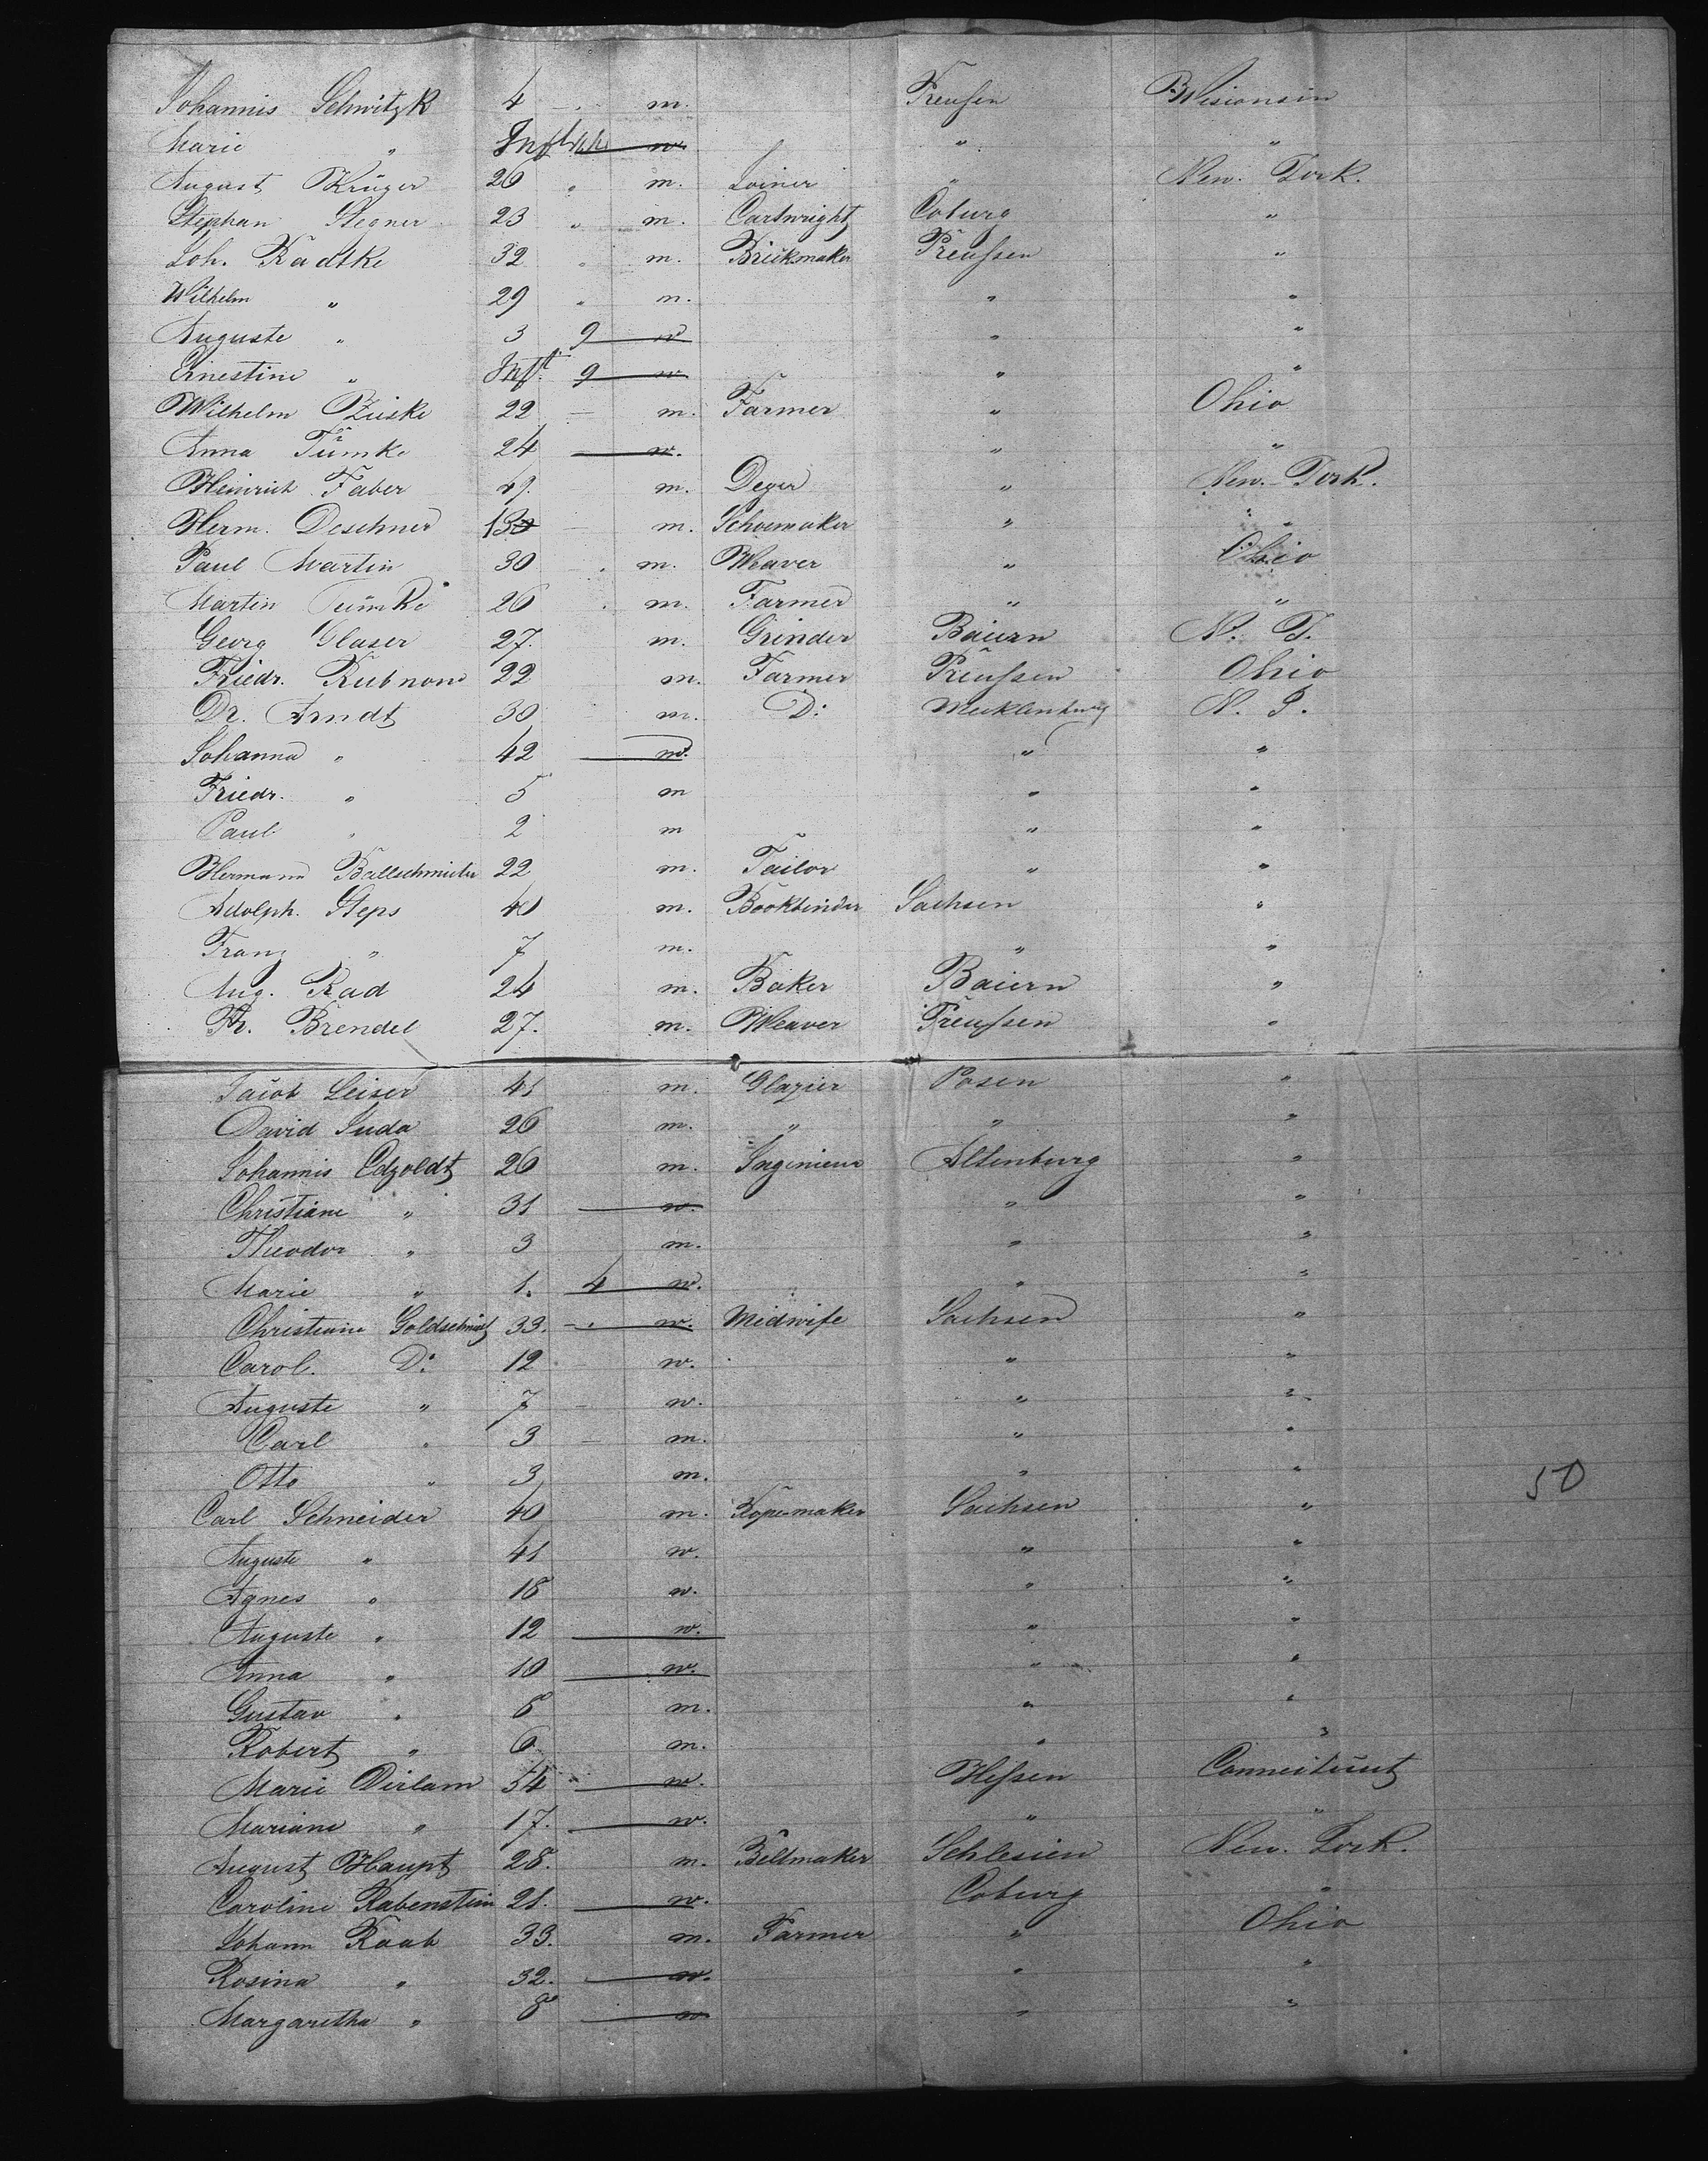 Johannis Schwitzk 4 - " m. Preussen Wisconsin
Marie " Inft w. " "
August Krüger 26 " m. Joiner " New-York.
Stephan Stegner 23 " m. Cartwright Coburg "
Joh. Radtke 32 " m. Brickmaker Preussen "
Wilhelm " 29 " m. " "
Auguste " 3 9 w " "
Ernestine " Inft. 9 w " "
Wilhelm Ziiske 22 - m. Farmer " Ohio
Anna Tümke 24 w. " "
Heinrich Faber 49. m. Deyer " New-York.
Herm. Deschner m. Schoemaker " "
Paul Martin 30 m. Weaver " Ohio
Martin Tümke 26 m. Farmer " "
Georg Glaser 27. m. Grinder Baiern N. Y.
Friedr. Rubnow 22 m. Farmer Preussen Ohio
Dr. Arndt 30 m. D: Mecklenburg N. Y.
Johanna " 42 w. " "
Friedr. " 5 m " "
Paul " 2 m " "
Hermann Ballschmieter 22 m. Tailor " "
Adolph. Steps 40 m. Bookbinder Sachsen "
Franz " 7 m. " "
Aug. Rad 24 m. Baker Baiern "
Fr. Brendel 27. m. Weaver Preussen "
Jacob Leiser 41 m. Glazier Posen "
David Juda 26 m. " " "
Johannis Edzoldt 26 m. Ingenieur Altenburg "
Christiane " 31 w. " "
Theodor " 3 m. " "
Marie " 1. 4 w. " "
Christiane Goldschmidt 33. w. Midwife Sachsen "
Carol. D: 12 w. " "
Auguste " 7 - w. " "
Carl " 3 - m. " "
Otto " 3 m. " "
50
Carl Schneider 40 m. Ropemaker Sachsen "
Auguste " 41 w. " "
Agnes " 18 w. " "
Auguste " 12 w. " "
Anna " 10 w. " "
Gustav " 8 m. " "
Robert " 6 m. " "
Marie Dirlam 54 w. Hessen Connecticut
Mariane " 17. w. " "
August Haupt 28. m. Beltmaker Schlesien New-York.
Caroline Rabenstein 21. w. Coburg "
Johann Raab 33. m. Farmer " Ohio
Rosina " 32. w. " "
Margaretha " 8 w " "